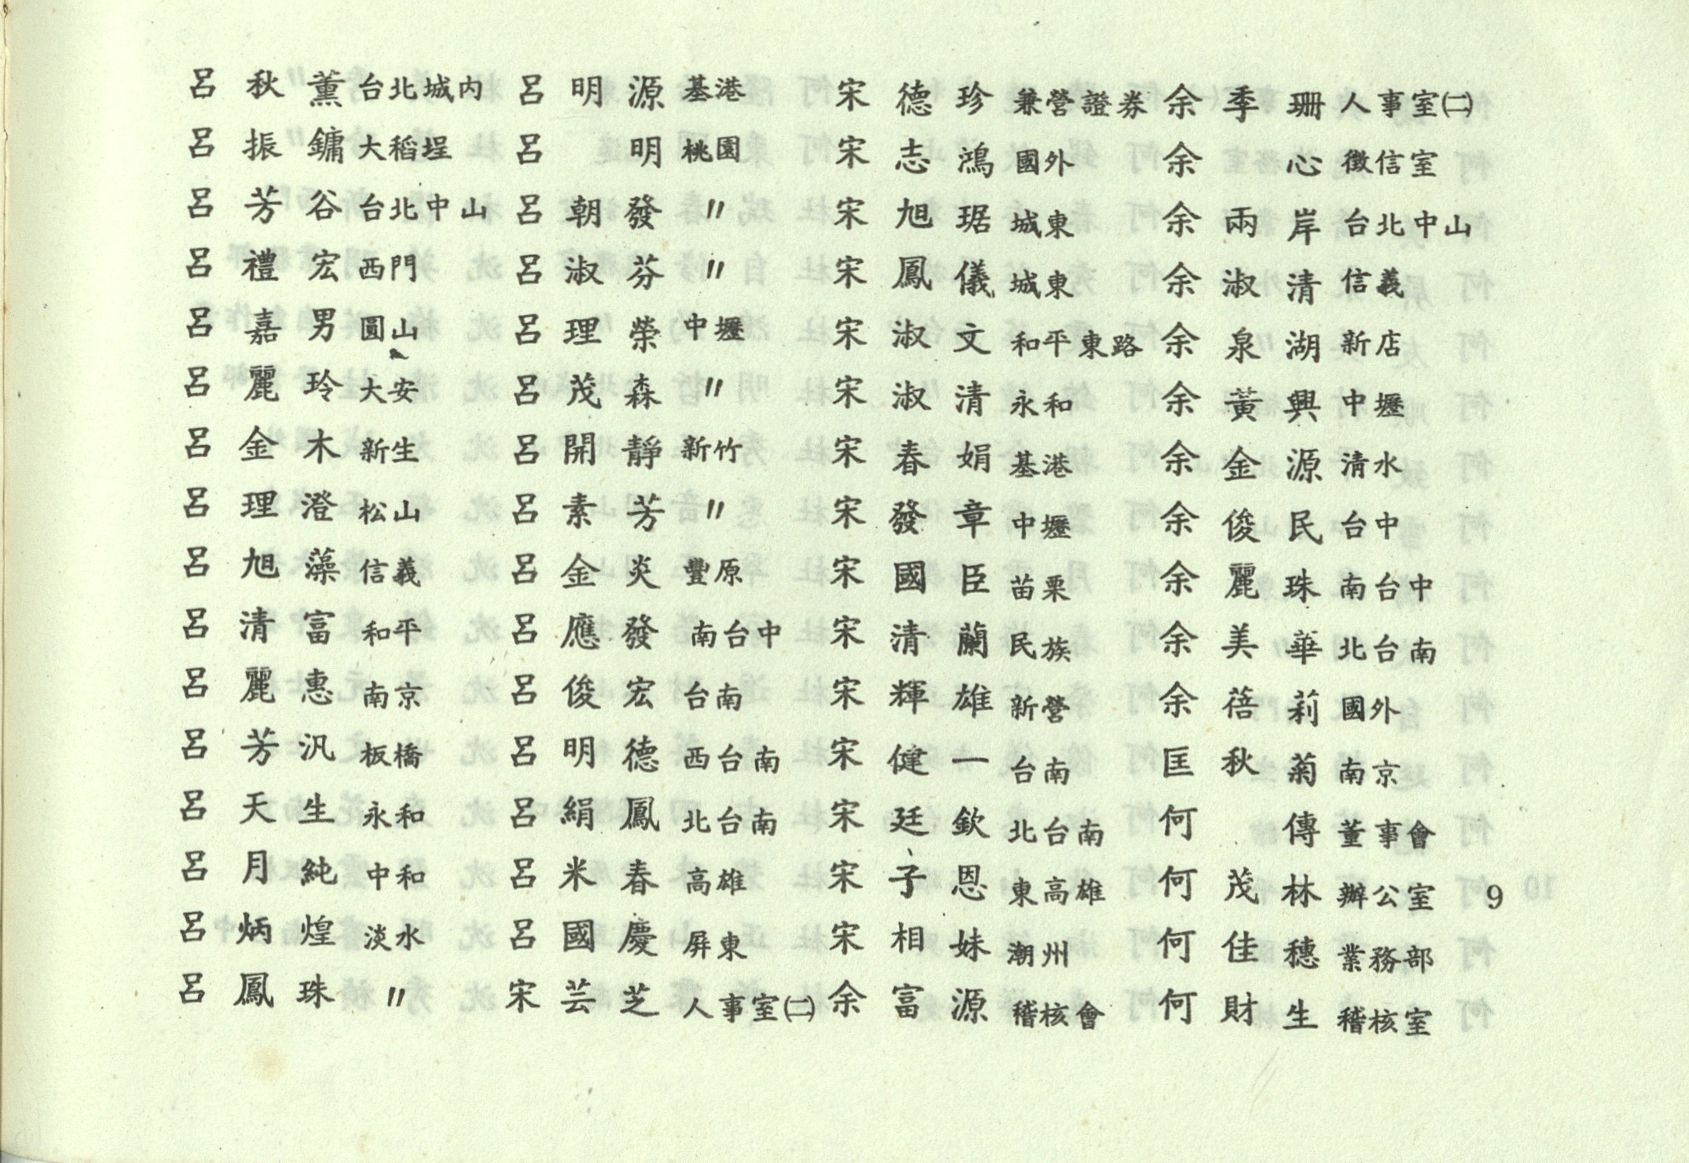 呂秋薰 台北城內
呂振鏞 大稻埕
呂芳谷 台北中山
呂禮宏 西門
呂嘉男 圓山
呂麗玲 大安
呂金木 新生
呂理澄 松山
呂旭藻 信義
呂清富 和平
呂麗惠 南京
呂芳汎 板橋
呂天生 永和
呂月純 中和
呂炳煌 淡水
呂鳳珠 〃
呂明源 基港
呂明 桃園
呂朝發 〃
呂淑芬 〃
呂理榮 中壢
呂茂森 〃
呂開靜 新竹
呂素芳 〃
呂金炎 豐原
呂應發 南台中
呂俊宏 台南
呂明德 西台南
呂絹鳳 北台南
呂米春 高雄
呂國慶 屏東
宋芸芝 人事室㈡
宋德珍 兼營證券
宋志鴻 國外
宋旭琚 城東
宋鳳儀 城東
宋淑文 和平東路
宋淑清 永和
宋春娟 基港
宋發章 中壢
宋國臣 苗栗
宋清蘭 民族
宋輝雄 新營
宋健一 台南
宋廷欽 北台南
宋子恩 東高雄
宋相妹 潮州
余富源 稽核會
余季珊 人事室㈡
余心 徵信室
余兩岸 台北中山
余淑清 信義
余泉湖 新店
余黃興 中壢
余金源 清水
余俊民 台中
余麗珠 南台中
余美華 北台南
余蓓莉 國外
匡秋菊 南京
何傳 董事會
何茂林 辦公室
何佳穗 業務部
何財生 稽核室
9